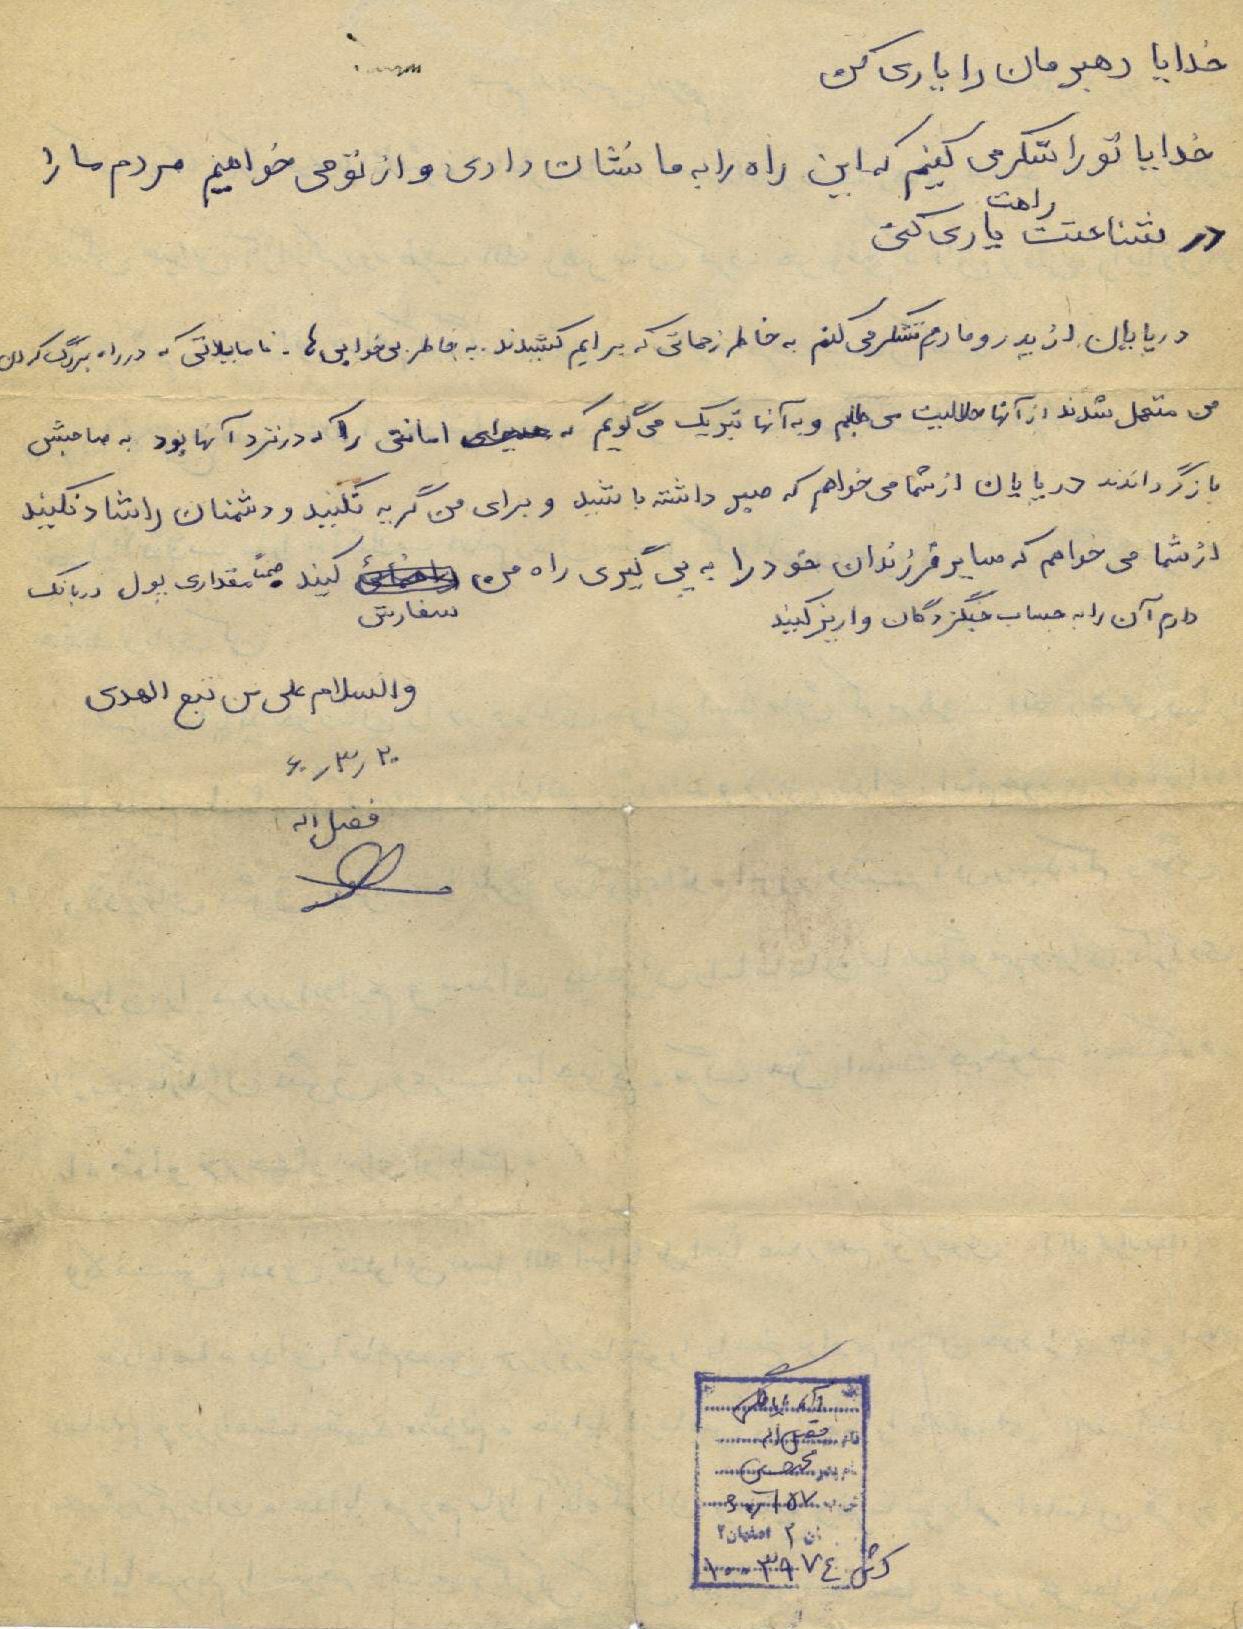 خدایا رهبرمان را یاری کن
خدایا تو را شکر می کنیم که این راه را به ما نشان دادی و از تو می خواهیم مردم ما را
راهت
در شناخت یاری کنی
در پایان از پدر و مادرم تشکر می کنم به خاطر زحماتی که برایم کشیدند. به خاطر بی خوابی ها. ناملایماتی که در راه بزرگ کردن
من متحمل شدند از آنها حلالیت می طلبم و به آنها تبریک می گویم که امانتی را که در نزد آنها بود به صاحبش
بازگرداندند در پایان از شما می خواهم که صبر داشته باشید و برای من گریه نکنید و دشمنان را شاد نکنید
از شما می خواهم که سایر فرزندان خود را به پی گیری راه من کنید ضمناً مقداری پول در بانک
سفارش
دارم آن را به حساب جنگزدگان واریز کنید
والسلام علی من تبع الهدی
۶۰/۳/۲۰
فضل اله
نام فضل اله
نام پدر محمدحسین
اصفهان ۲